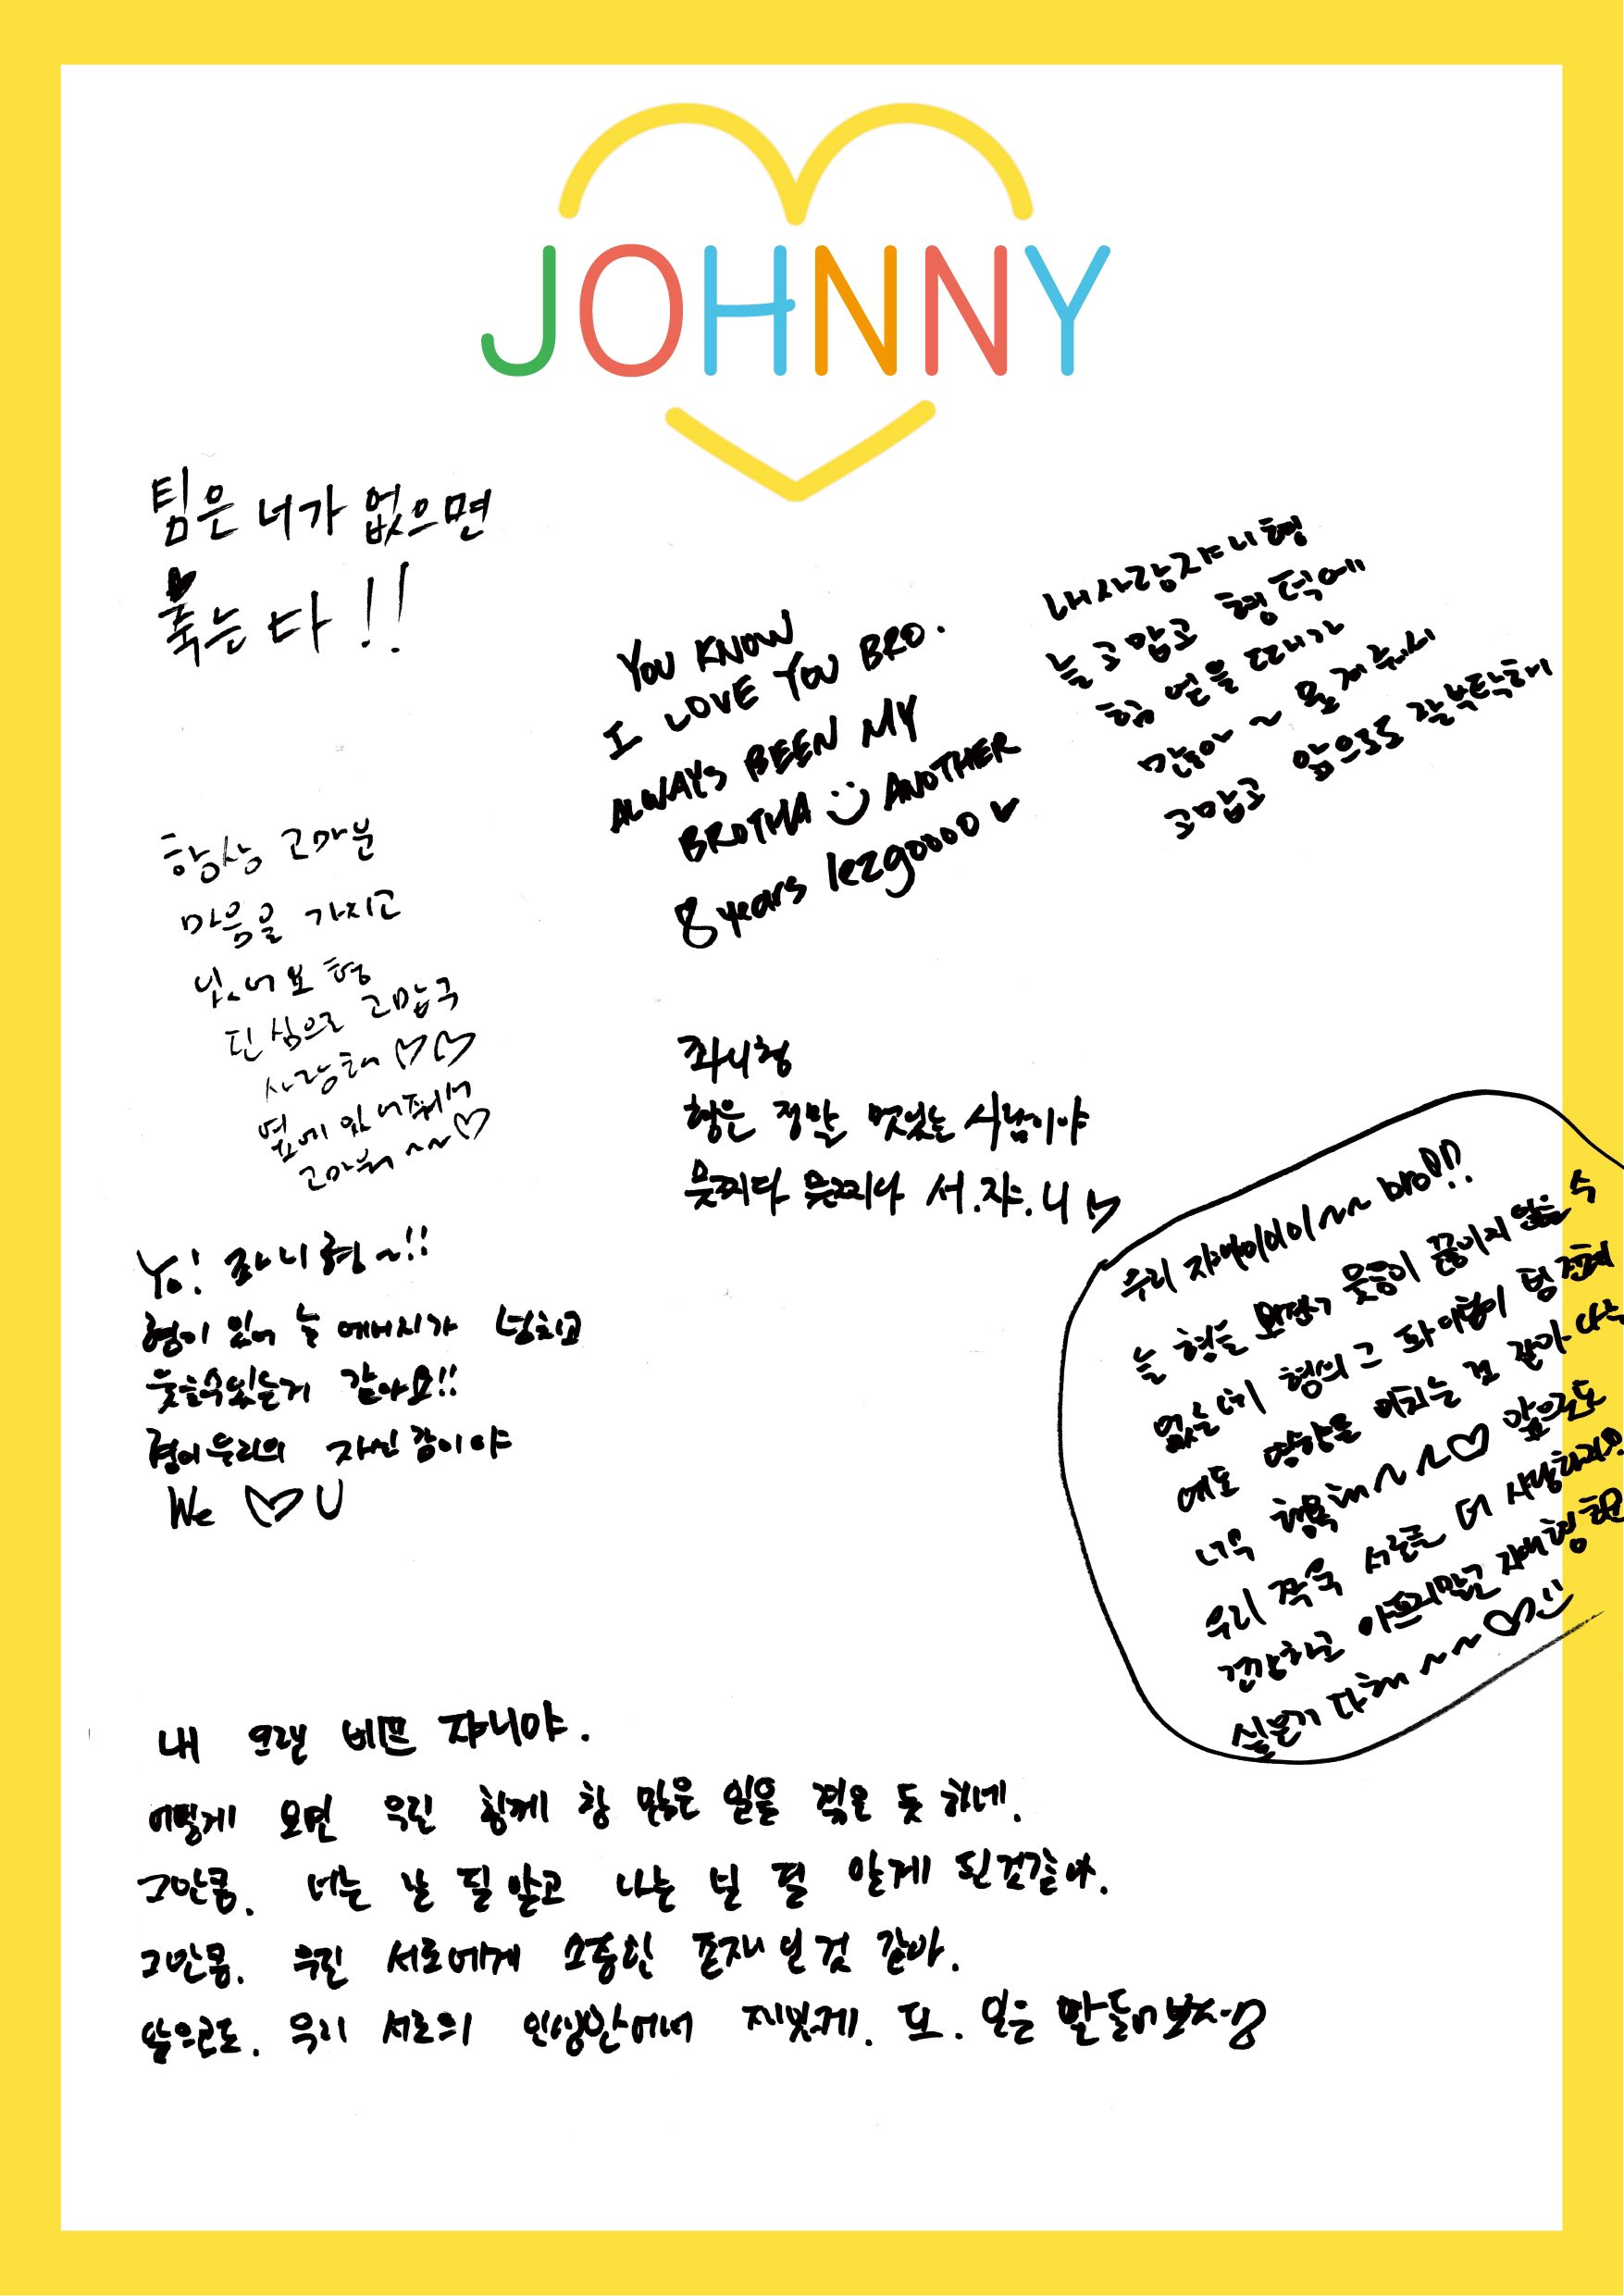 JOHNNY
팀은 너가 없으면
죽는다!!
YOU KNOW
I LOVE YOU BRO.
ALWAYS BEEN MY
BROTHA ANOTHER
8 years lezgoooo
내사랑쟈니형
늘 고맙고 형 덕에
힘 얻을 때가
많아~
고맙고 앞으로도 잘부탁해
항상 고마운
마음을 가지고
있어요 형
진심으로 고맙구
사랑해♡♡
옆에 있어줘서
고마워~~♡
쟈니형
형은 정말 멋있는 사람이야
멋찌다 멋찌다 서.쟈.니
Yo! 쟈니형~!!
형이 있어 늘 에너지가 넘치고
웃을수있는거 같아요!!
형이우리의 자신감이야
We ♡ U
우리 ~~ bro!!
늘 형을 웃음이 끊이지 않을 수
없는데 형의 그
에도 영향을 미치는 것 같아
너무 행복해~~♡ 앞으로도
우리 쭈욱 서로를 더 사랑하
건강하고 아프지말고
~~♡
내 오랜 베프 쟈니야.
어떻게 보면 우린 함께 참 많은 일을 겪은 듯 하네.
그만큼. 너는 날 잘 알고 나는 널 잘 알게 된것같아.
그만큼. 우린 서로에게 소중한 존재인것 같아.
앞으로도. 우리 서로의 인생안에서 재밌게. 또.